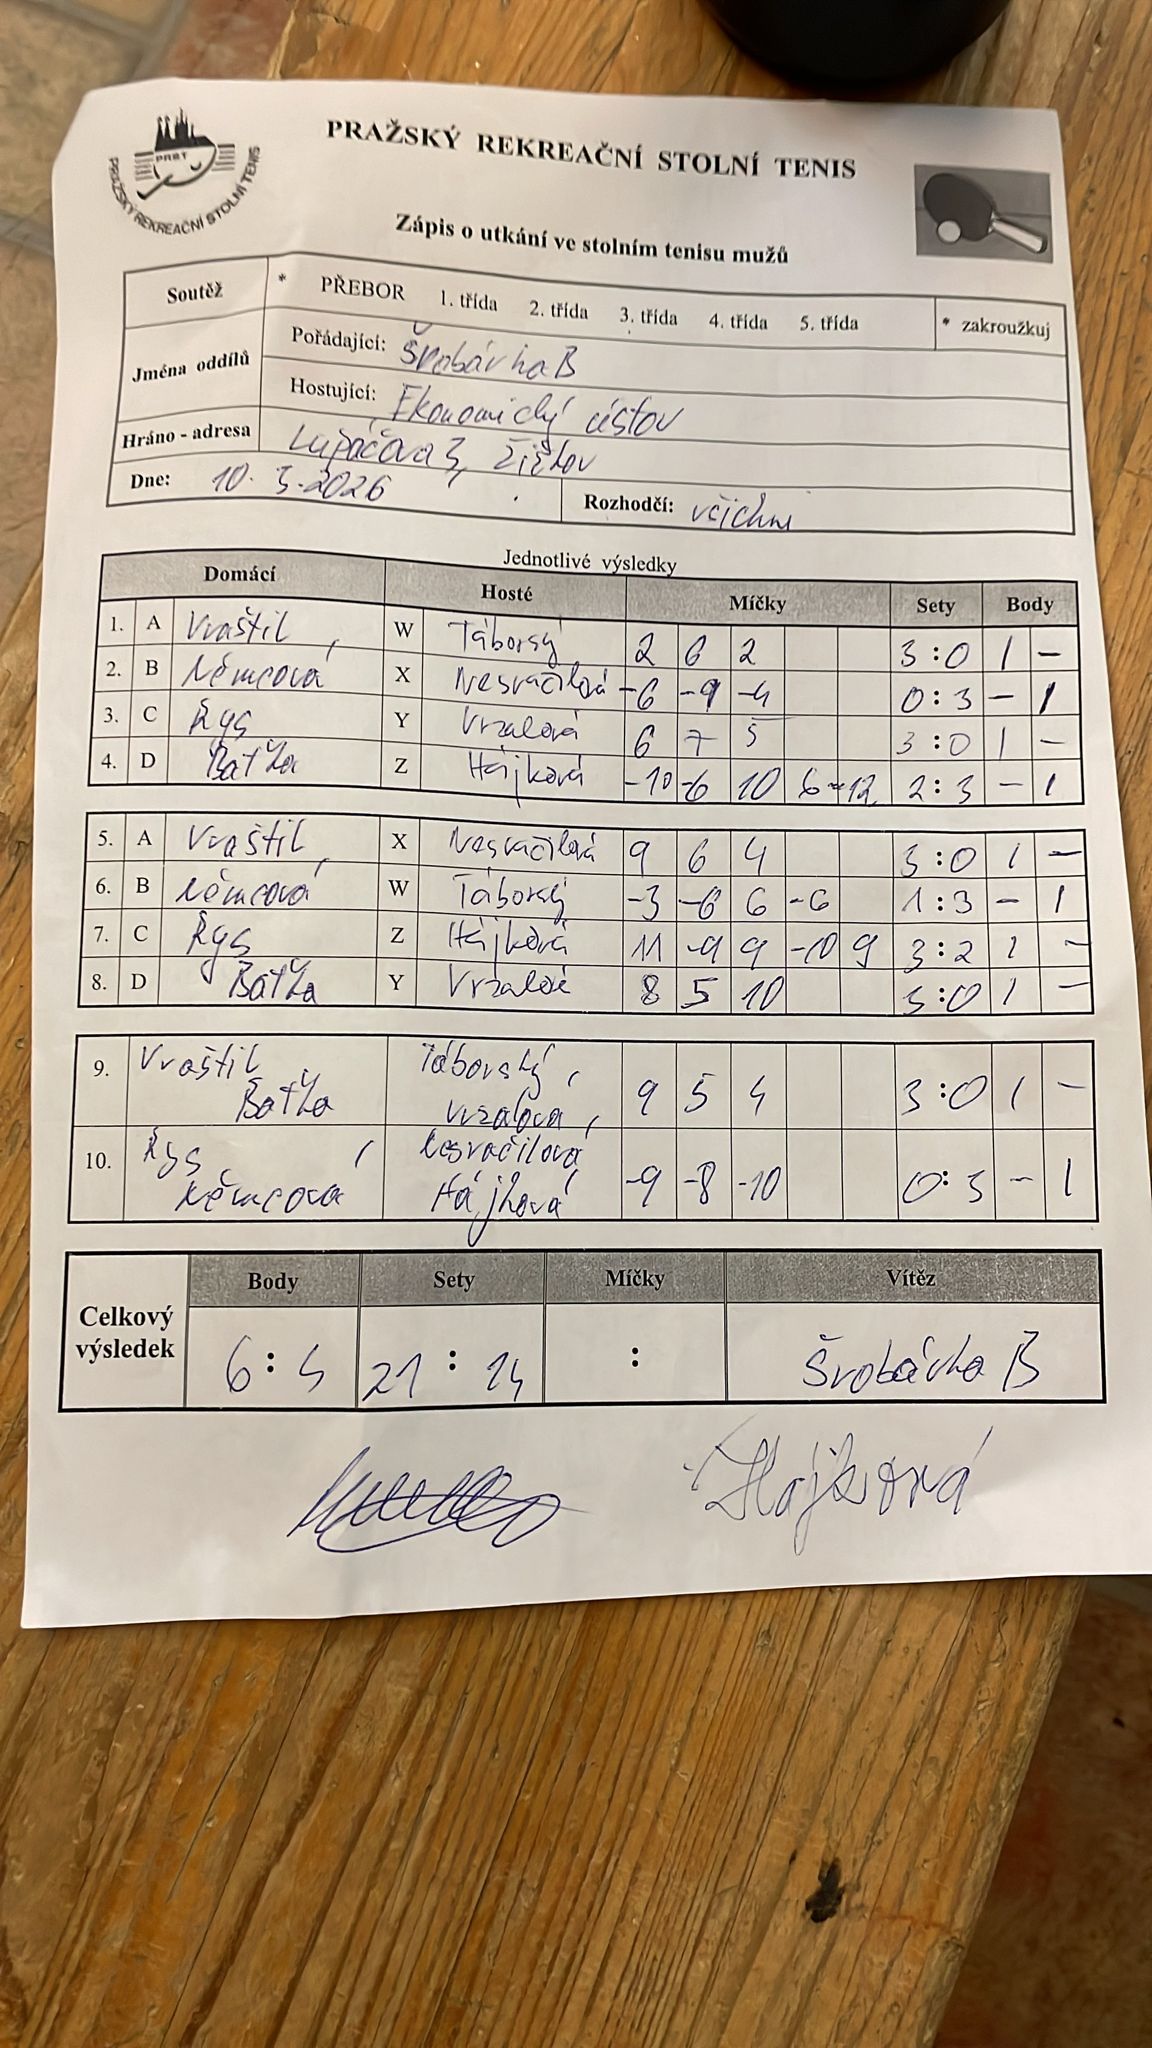 PRST
PRAŽSKÝ REKREAČNÍ STOLNÍ TENIS
PRAŽSKÝ REKREAČNÍ STOLNÍ TENIS
Zápis o utkání ve stolním tenisu mužů
Soutěž * PŘEBOR 1. třída 2. třída 3. třída 4. třída 5. třída * zakroužkuj
Jména oddílů
Pořádající: Šrobárka B
Hostující: Ekonomický ústav
Hráno - adresa Lupáčova 3, Žižkov
Dne: 10. 3. 2026 Rozhodčí: všichni
Jednotlivé výsledky
Domácí Hosté Míčky Sety Body
1. A Vraštil W Táborský 2 6 2 3:0 1 -
2. B Němcová X Nesvačilová -6 -9 -4 0:3 - 1
3. C Rys Y Vrzalová 6 7 5 3:0 1 -
4. D Baťka Z Hájková -10 -6 10 6 -12 2:3 - 1
5. A Vraštil X Nesvačilová 9 6 4 3:0 1 -
6. B Němcová W Táborský -3 -6 6 -6 1:3 - 1
7. C Rys Z Hájková 11 -9 9 -10 9 3:2 1 -
8. D Baťka Y Vrzalová 8 5 10 3:0 1 -
9. Vraštil Táborský,
Baťka Vrzalová, 9 5 4 3:0 1 -
10. Rys, Nesvačilová
Němcová Hájková -9 -8 -10 0:3 - 1
Celkový výsledek
Body Sety Míčky Vítěz
6:4 21:14 : Šrobárka B
Hájková